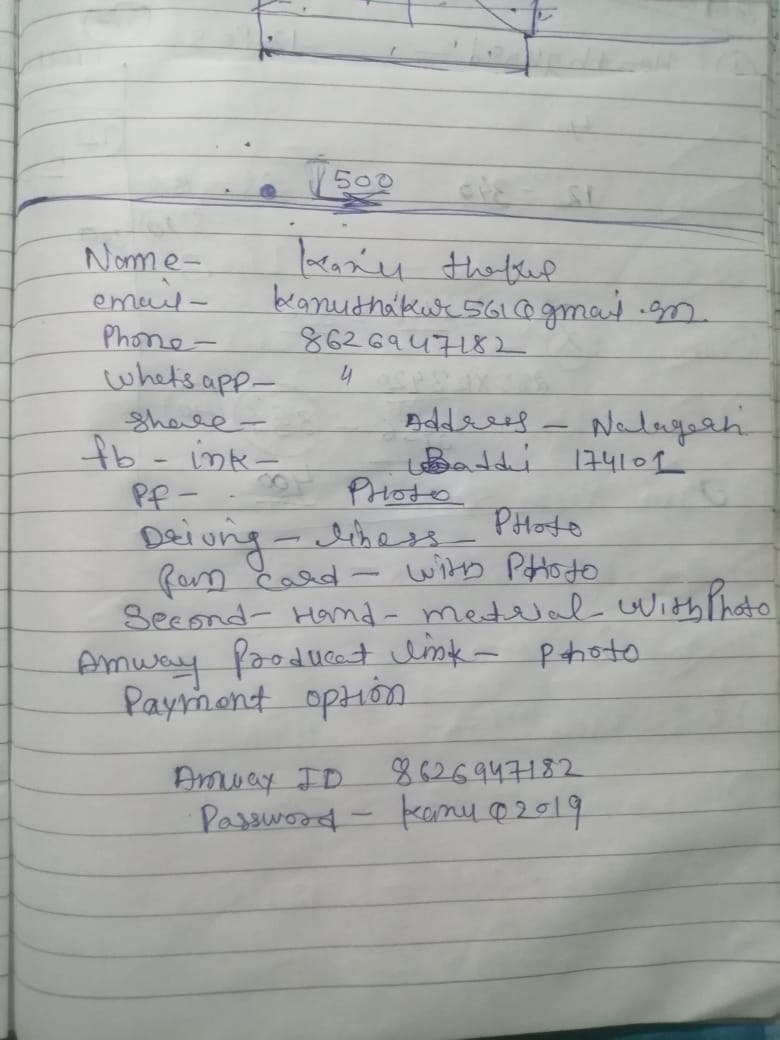 1500
Name- Kanu thakur
email- kanuthakur561@gmail.com
Phone- 8626947182
Whatsapp- "
Share- Address - Nalagarh
fb - ink- Baddi 174101
PP- Photo
Driving - lihess - Photo
Pan card - with Photo
Second - Hand - metrial - With Photo
Amway Producat link - photo
Payment option
Amway ID 8626947182
Password - Kanu@2019